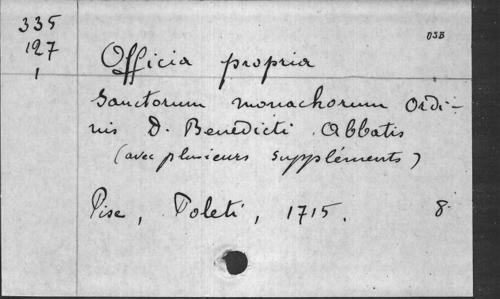 335
127
1
OSB
Officia propria
Sanctorum monachorum Ordi-
nis D. Benedicti Abbatis
(avec plusieurs suppléments)
Pise, Poleti, 1715. 8